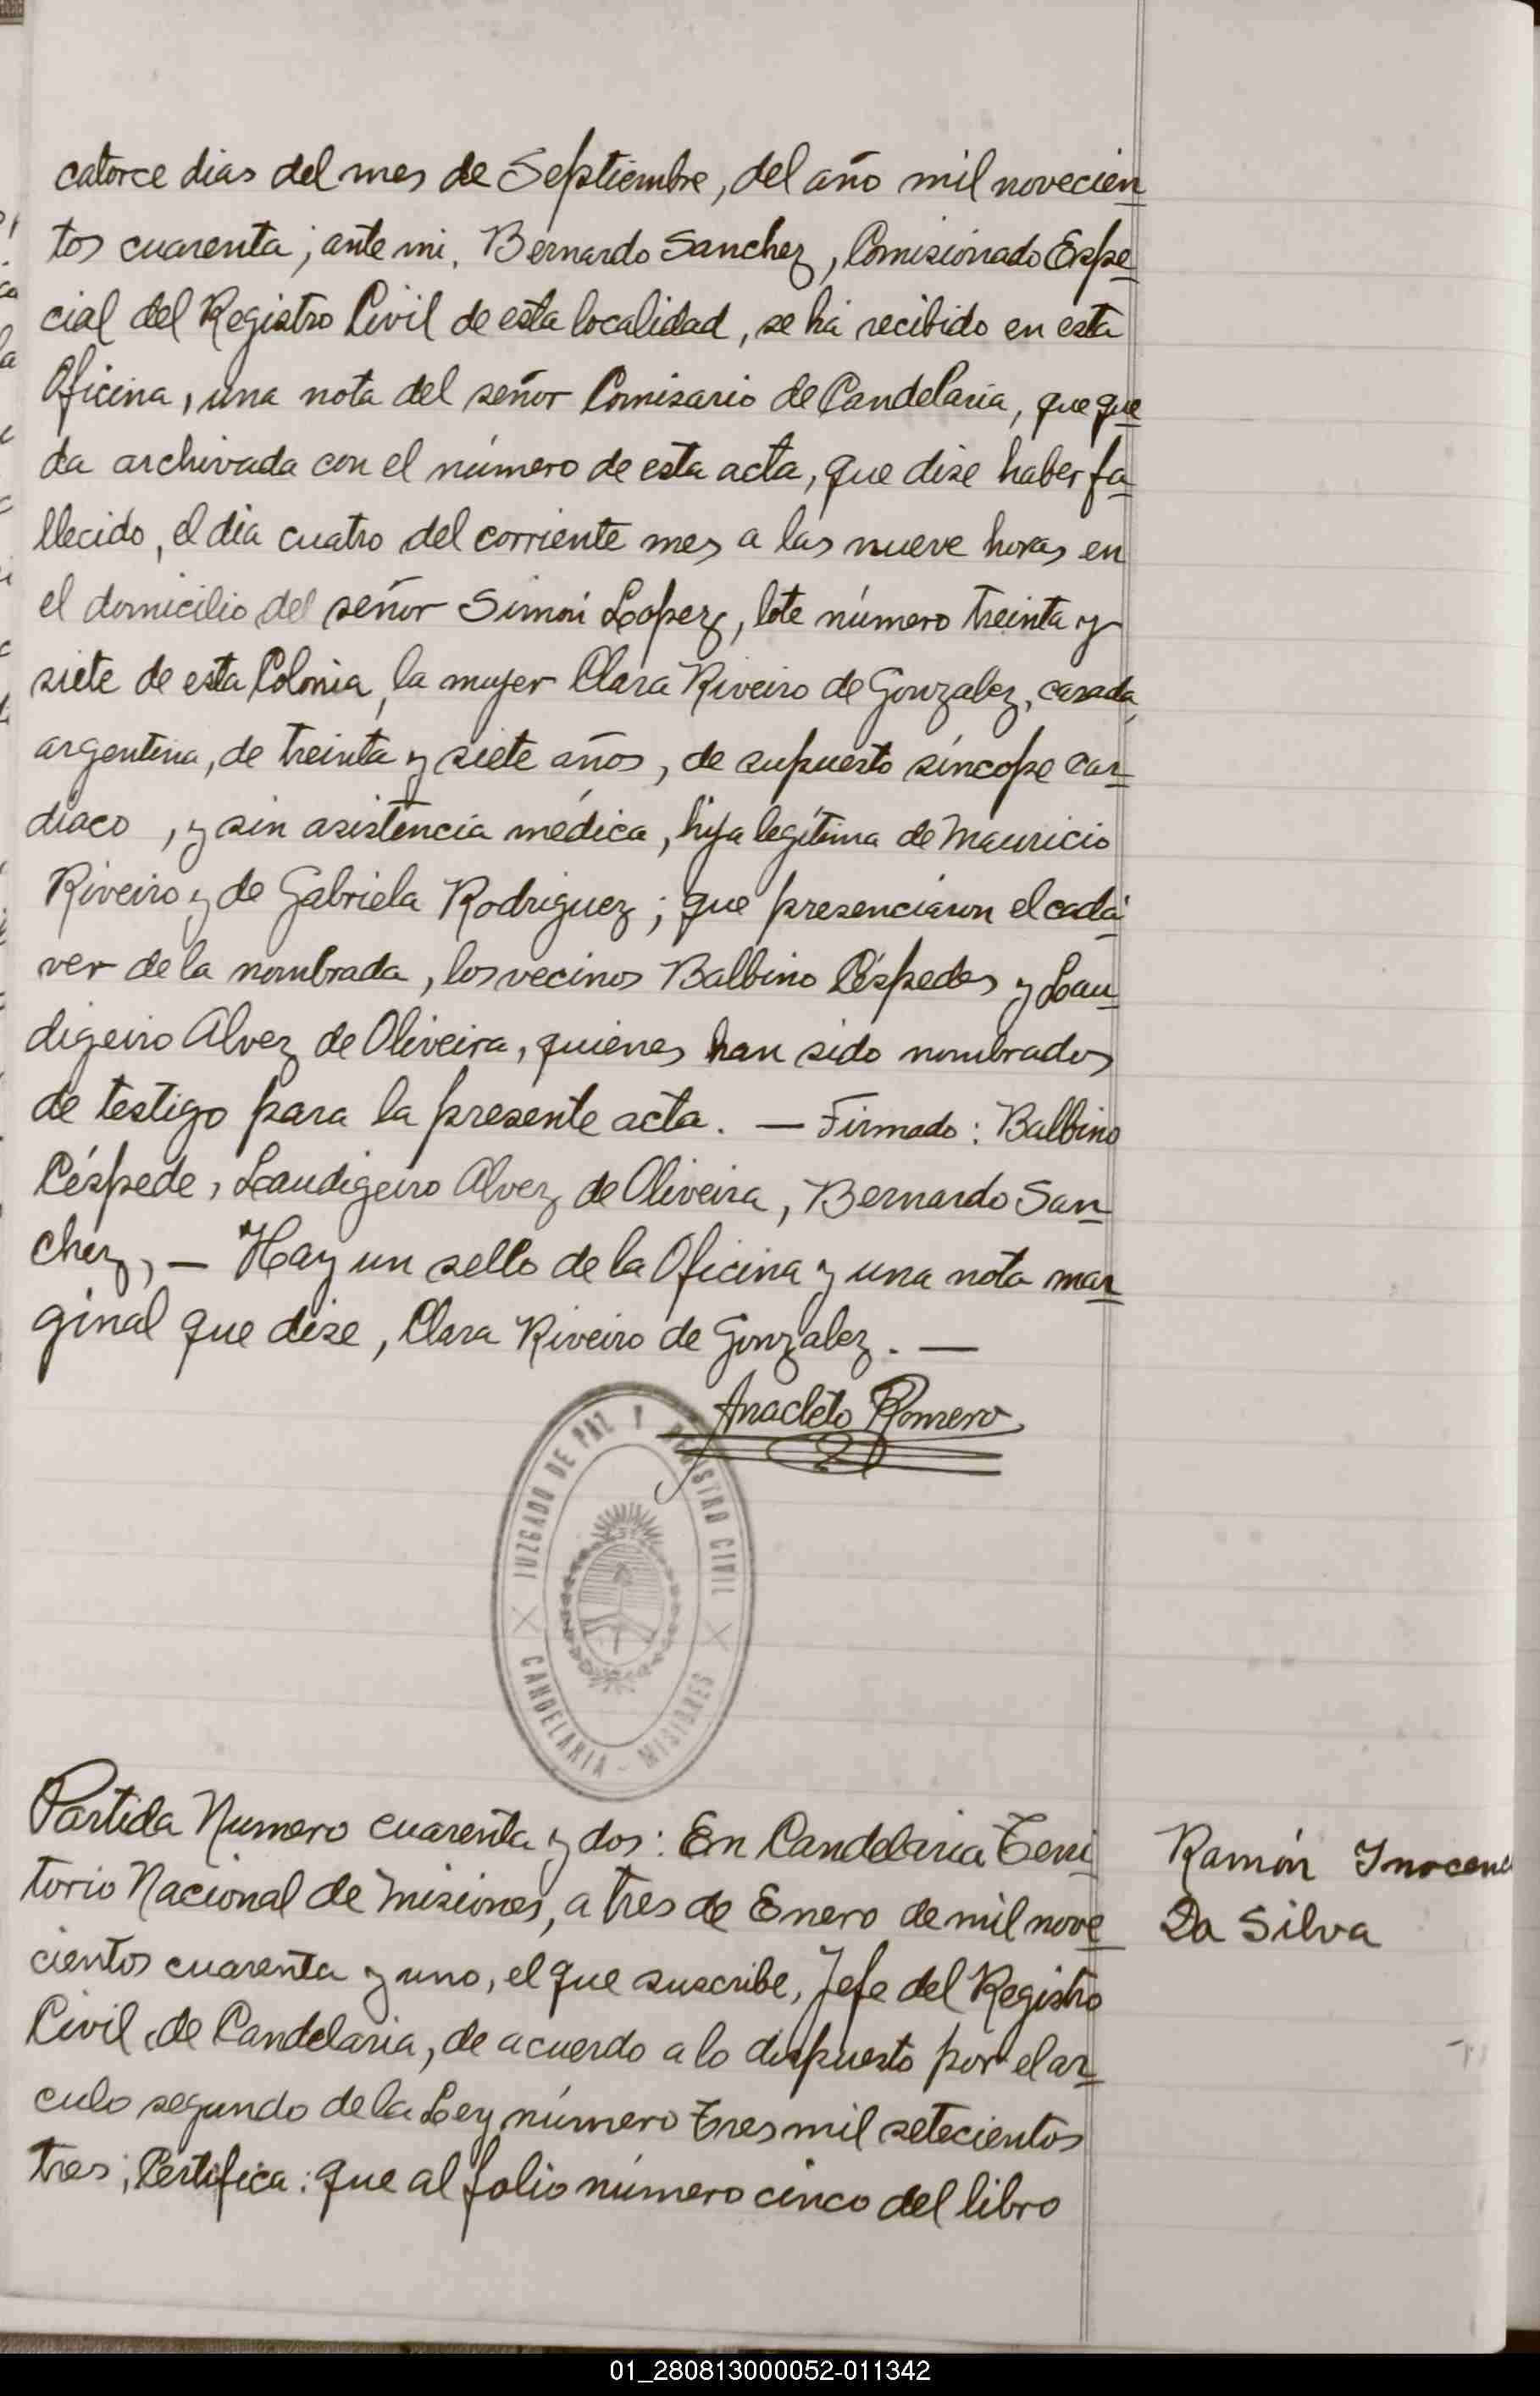 catorce dias del mes de Septiembre, del año mil novecien
tos cuarenta; ante mi, Bernardo Sanchez, Comisionado Espe
cial del Registro Civil de esta localidad, se ha recibido en esta
Oficina, una nota del señor Comisario de Candelaria, que que
da archivada con el número de esta acta, que dise haber fa
llecido, el dia cuatro del corriente mes a las nueve horas en
el domicilio del señor Simón Lopez, lote número treinta y
siete de esta Colonia, la mujer Clara Riveiro de Gonzalez, casada,
argentina, de treinta y siete años, de supuesto síncope car
diaco, y sin asistencia médica, hija legítima de Mauricio
Riveiro y de Gabriela Rodriguez; que presenciaron el cadá
ver de la nombrada, los vecinos Balbino Céspedes y Lau
digeiro Alvez de Oliveira, quienes han sido nombrados
de testigo para la presente acta. — Firmado: Balbino
Céspede, Laudigeiro Alvez de Oliveira, Bernardo San
chez, — Hay un sello de la Oficina y una nota mar
ginal que dise, Clara Riveiro de Gonzalez. —
Anacleto Romero
JUZGADO DE PAZ Y REGISTRO CIVIL
CANDELARIA - MISIONES
Partida Numero cuarenta y dos: En Candelaria Terri
torio Nacional de Misiones, a tres de Enero de mil nove
cientos cuarenta y uno, el que suscribe, Jefe del Registro
Civil de Candelaria, de acuerdo a lo dispuesto por el ar
culo segundo de la Ley número tres mil setecientos
tres; Certifica: que al folio número cinco del libro
Ramón Inocenc
Da Silva
01_280813000052-011342